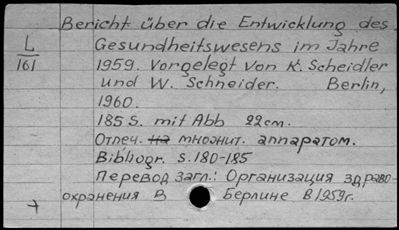 Bericht über die Entwicklung des
L Gesundheitswesens im Jahre
161 1959. Vorgelegt von K. Scheidler
und W. Schneider. Berlin,
1960.
185 S. mit Abb 22см.
Отпеч. на множит. аппаратом.
Bibliogr. S. 180-185
Перевод загл.: Организация здраво-
охранения в Берлине в 1959г.